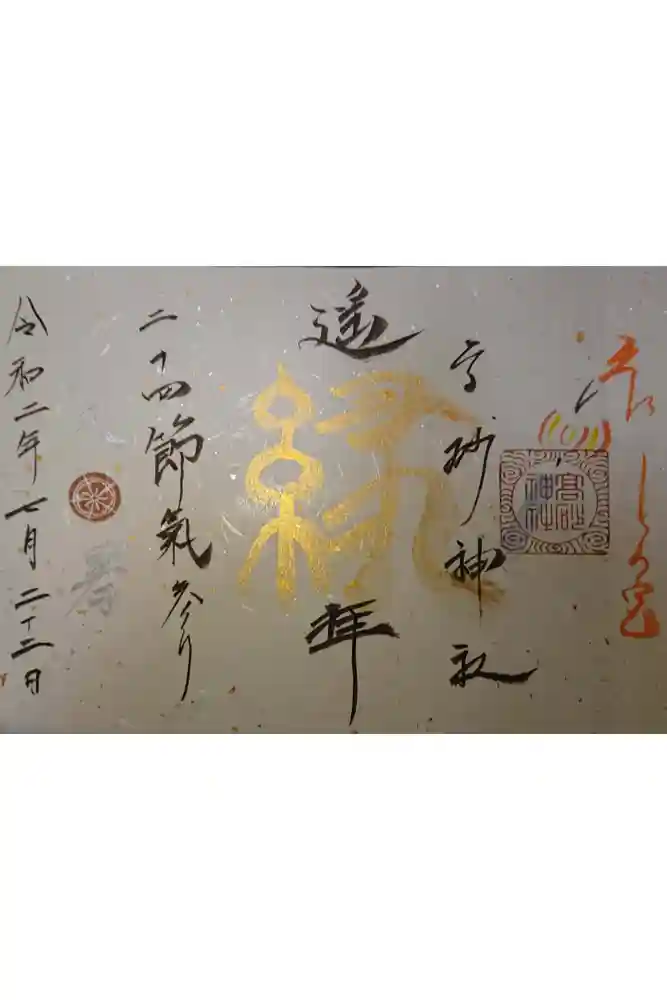 高砂神社
高砂神社
縁
遥拝
二十四節氣参り
寿
令和二年七月二十二日